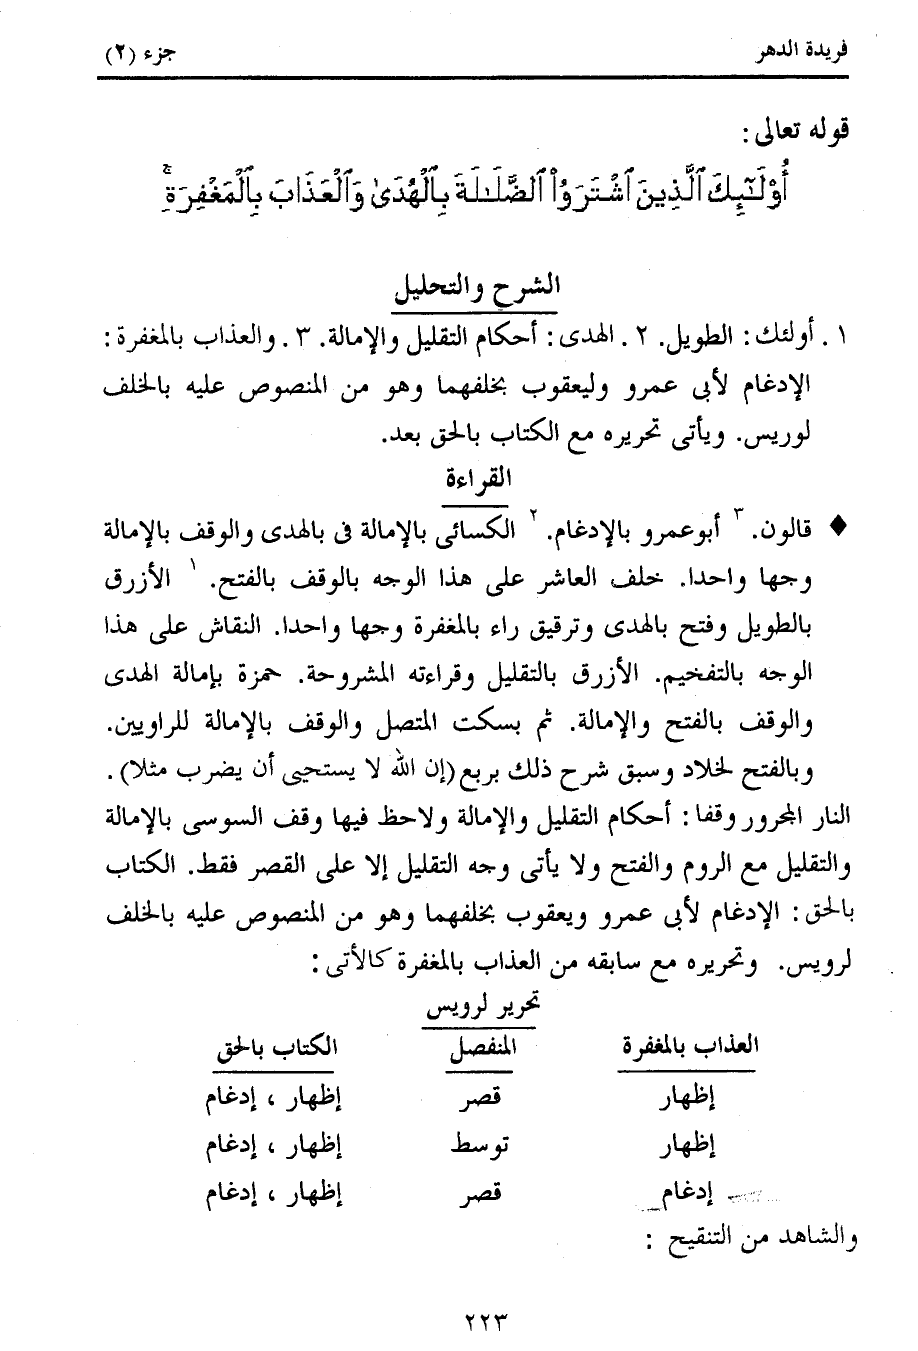 فريدة الدهر جزء (٢)
قوله تعالى:
أُوْلَـٰٓئِكَ ٱلَّذِينَ ٱشْتَرَوُا۟ ٱلضَّلَـٰلَةَ بِٱلْهُدَىٰ وَٱلْعَذَابَ بِٱلْمَغْفِرَةِ ۚ
الشرح والتحليل
١. أولئك: الطويل. ٢. الهدى: أحكام التقليل والإمالة. ٣. والعذاب بالمغفرة:
الإدغام لأبى عمرو وليعقوب بخلفهما وهو من المنصوص عليه بالخلف
لوريس. ويأتى تحريره مع الكتاب بالحق بعد.
القراءة
♦ قالون. ٣ أبوعمرو بالإدغام. ٢ الكسائى بالإمالة فى بالهدى والوقف بالإمالة
وجها واحدا. خلف العاشر على هذا الوجه بالوقف بالفتح. ١ الأزرق
بالطويل وفتح بالهدى وترقيق راء بالمغفرة وجها واحدا. النقاش على هذا
الوجه بالتفخيم. الأزرق بالتقليل وقراءته المشروحة. حمزة بإمالة الهدى
والوقف بالفتح والإمالة. ثم بسكت المتصل والوقف بالإمالة للراويين.
وبالفتح لخلاد وسبق شرح ذلك بربع (إن الله لا يستحيى أن يضرب مثلا).
النار المجرور وقفا: أحكام التقليل والإمالة ولاحظ فيها وقف السوسى بالإمالة
والتقليل مع الروم والفتح ولا يأتى وجه التقليل إلا على القصر فقط. الكتاب
بالحق: الإدغام لأبى عمرو ويعقوب بخلفهما وهو من المنصوص عليه بالخلف
لرويس. وتحريره مع سابقه من العذاب بالمغفرة كالأتى:
تحرير لرويس
العذاب بالمغفرة المنفصل الكتاب بالحق
إظهار قصر إظهار ، إدغام
إظهار توسط إظهار ، إدغام
إدغام قصر إظهار ، إدغام
والشاهد من التنقيح :
٢٢٣